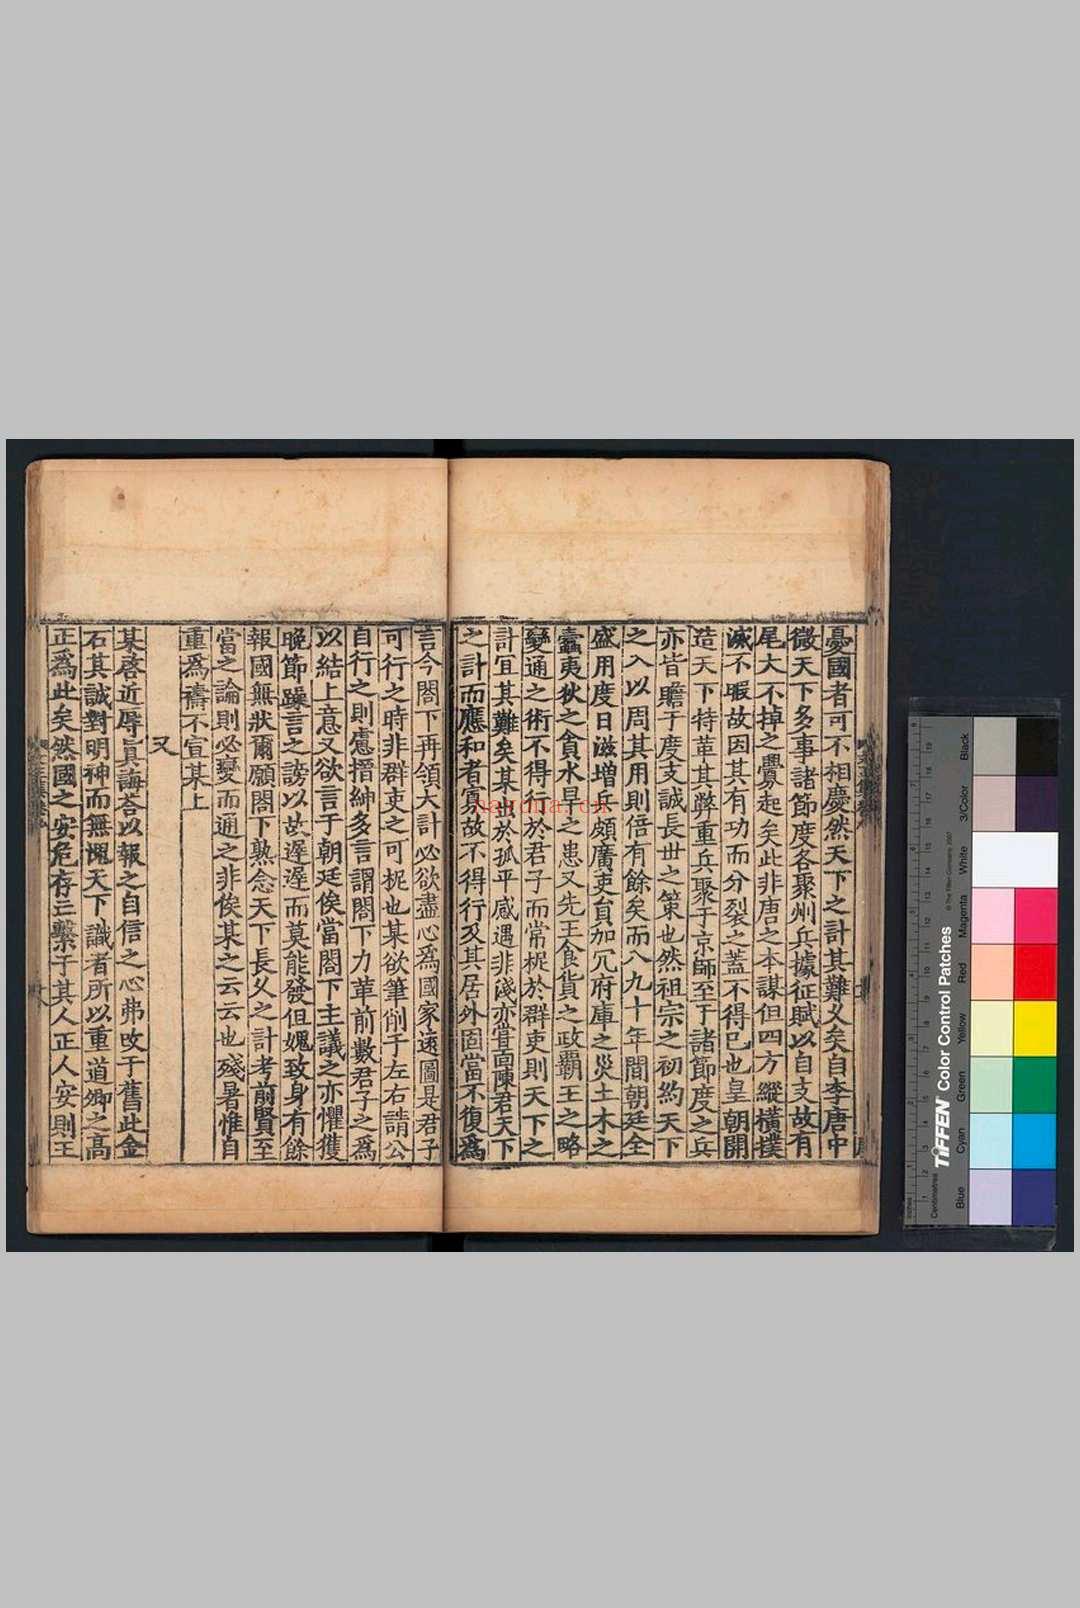 憂國者可不相慶然天下之計其難乂矣自李唐中
微天下多事諸節度各聚州兵據征賦以自支故有
尾大不掉之釁起矣此非唐之本謀但四方縱橫撲
滅不暇故因其有功而分裂之蓋不得已也皇朝開
造天下特革其弊重兵聚于京師至于諸節度之兵
亦皆贍于度支誠長世之策也然祖宗之初約天下
之入以周其用則倍有餘矣而八九十年間朝廷全
盛用度日滋增兵頗廣吏員加冗府庫之災土木之
蠹夷狄之貪水旱之患又先王食貨之政霸王之略
變通之術不得行於君子而常柅於群吏則天下之
計宜其難矣某雖於孤平感遇非淺亦嘗面陳君天下
之計而應和者寡故不得行及其居外固當不復爲
言今閤下再領大計必欲盡心爲國家遠圖是君子
可行之時非群吏之可柅也某欲筆削于左右請公
自行之則慮搢紳多言謂閤下力革前數君子之爲
以結上意又欲言于朝廷俟當閤下主議之亦懼獲
晚節躁言之謗以故遲遲而莫能發但媿致身有餘
報國無狀爾願閤下熟念天下長久之計考前賢至
當之論則必變而通之非俟某之云云也殘暑惟自
重爲禱不宣某上
又
某啓近辱眞誨荅以報之自信之心弗攺于舊此金
石其誠對明神而無愧天下識者所以重道卿之高
正爲此矣然國之安危存亡繫于其人正人安則王
hayona.cn
TIFFEN Color Control Patches
© The Tiffen Company, 2007
Inches
Centimetres
Blue
Cyan
Green
Yellow
Red
Magenta
White
3/Color
Black